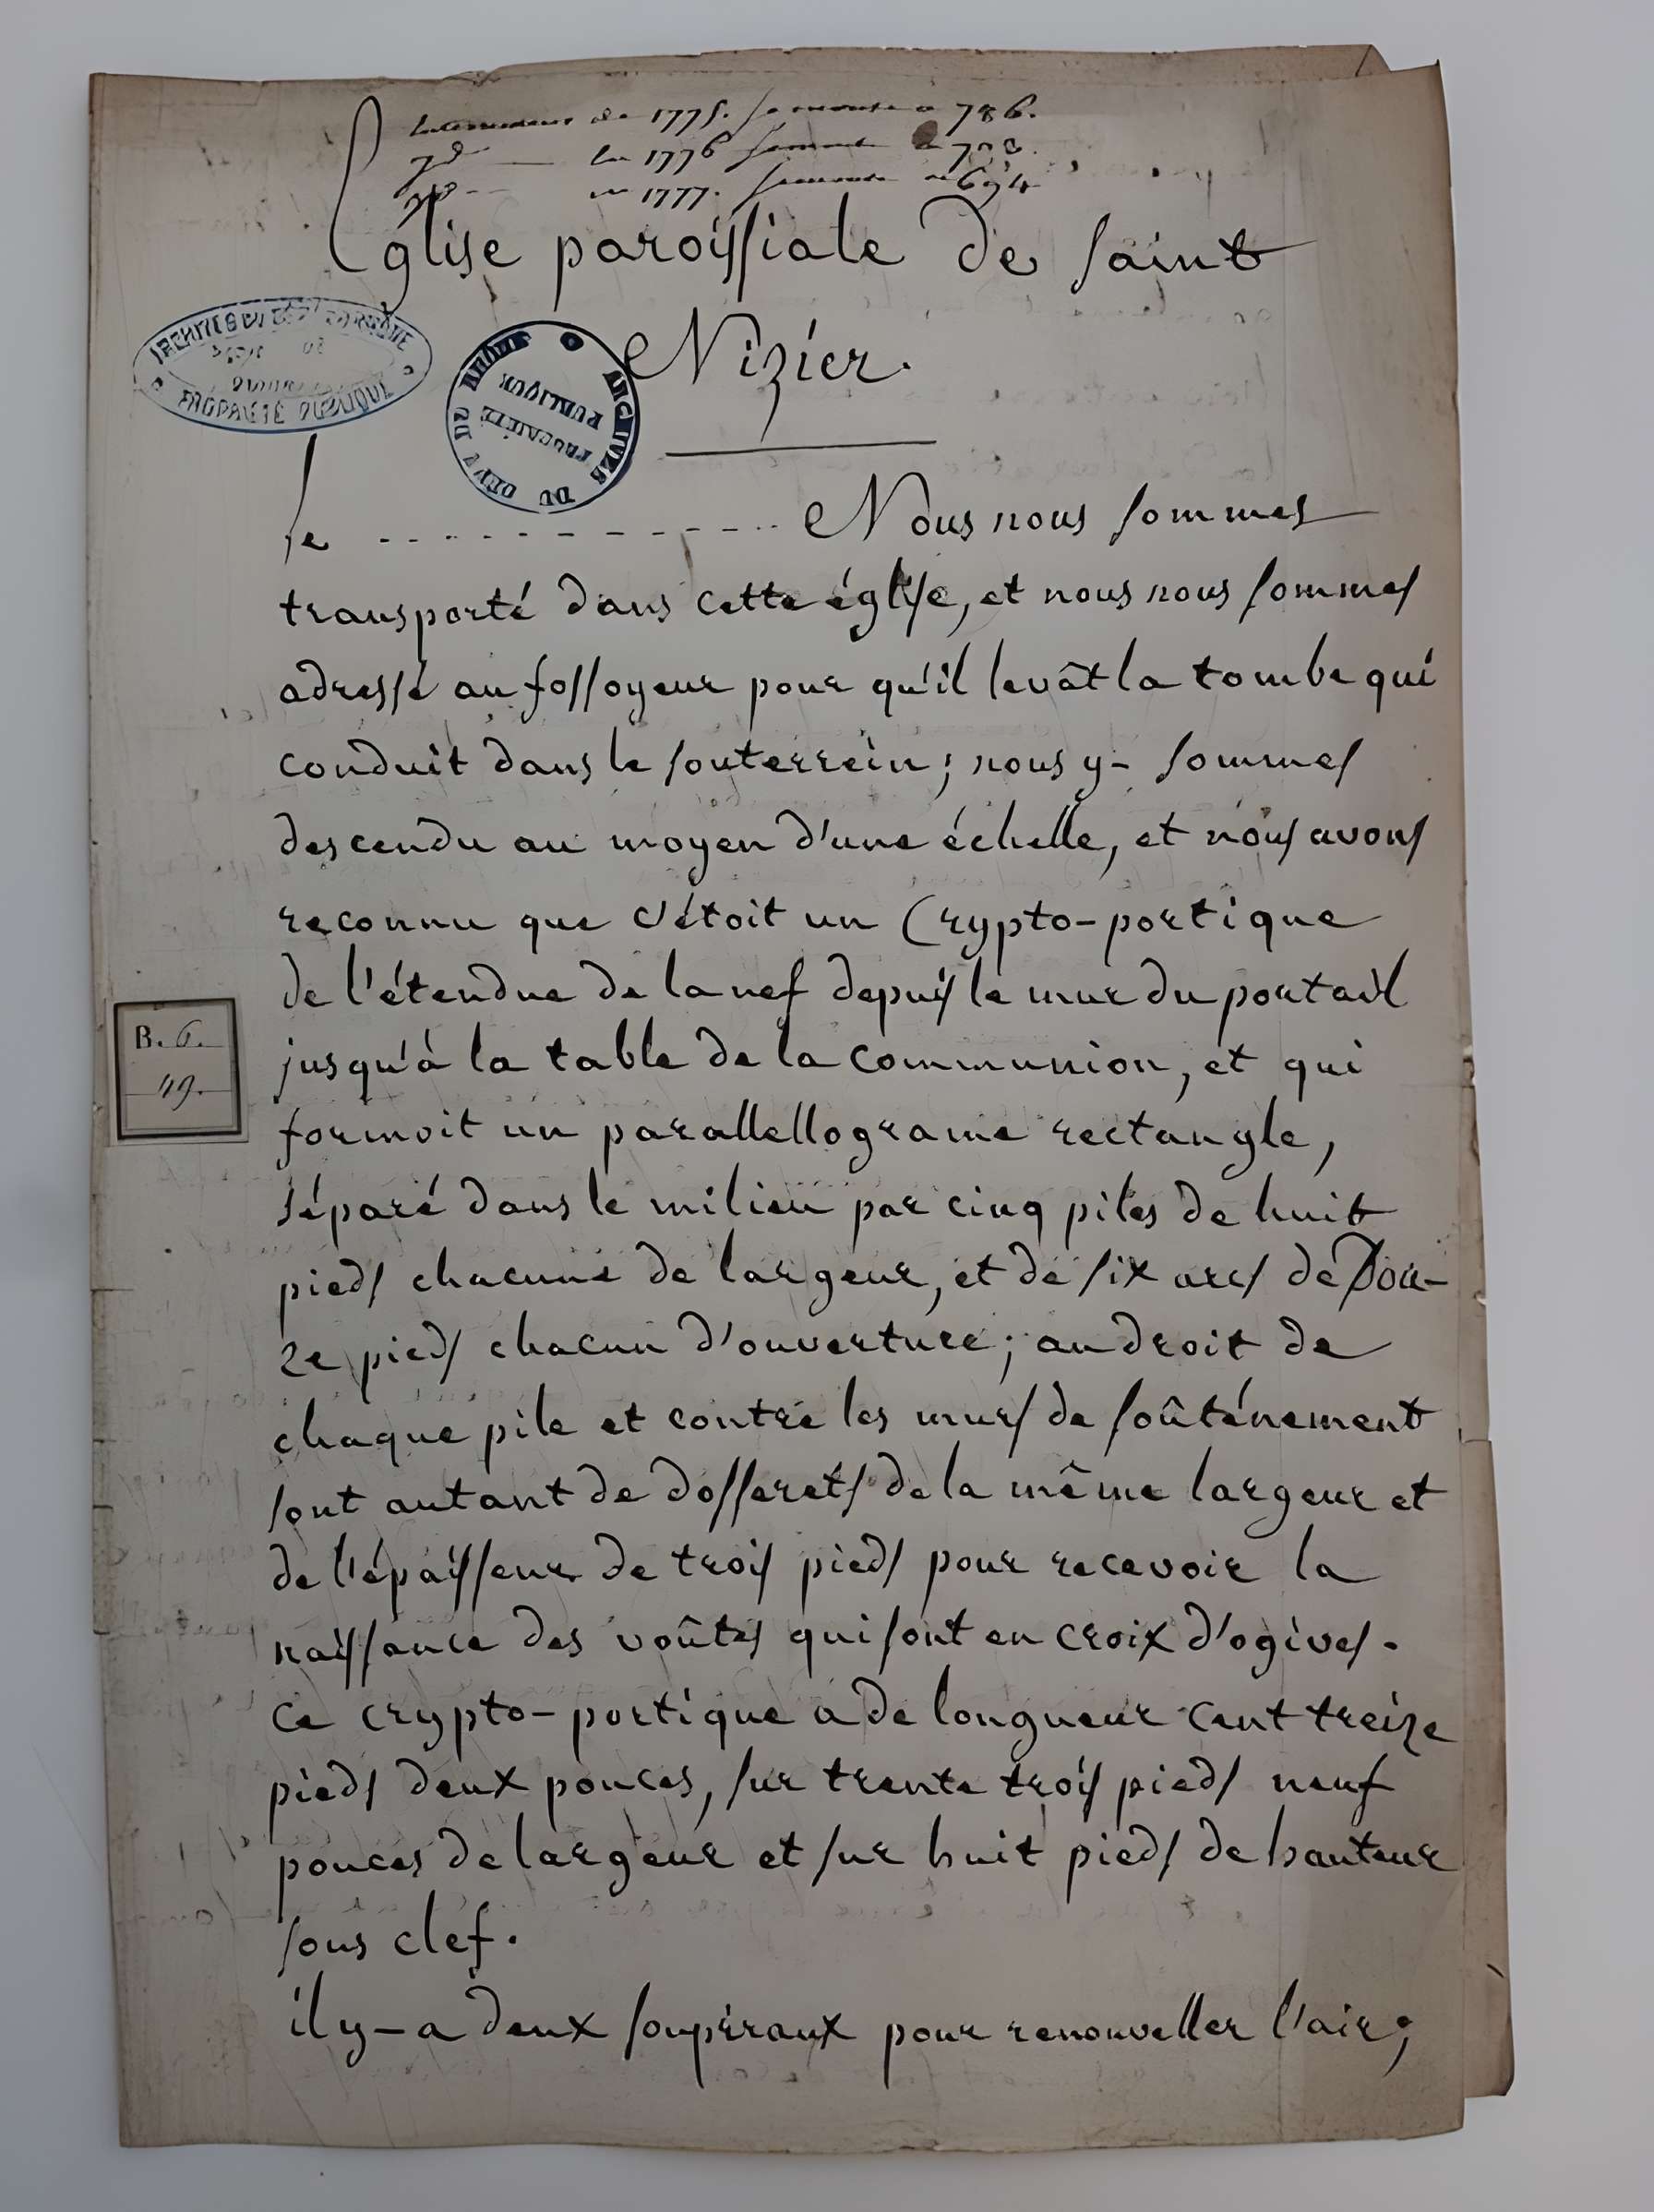 de 1775. se monte a 786.
jd — en 1776 semonte a
jd — en 1777. semonte a 694
Eglise paroissiale de saint
Nizier.
PROPRIÉTÉ PUBLIQUE
ARCHIVES DU DEPT DU RHÔNE
PROPRIÉTÉ PUBLIQUE
Le ............ Nous nous sommes
transporté dans cette église, et nous nous sommes
adressé au fossoyeur pour qu'il levât la tombe qui
conduit dans le souterrein; nous y- sommes
descendu au moyen d'une échelle, et nous avons
reconnu que c'étoit un Crypto-portique
de l'étendue de la nef depuis le mur du portail
jusqu'à la table de la communion, et qui
B. 6.
49.
formoit un parallellograme rectangle,
séparé dans le milieu par cinq piles de huit
pieds chacune de largeur, et de six arcs de Dou-
ze pieds chacun d'ouverture; au droit de
chaque pile et contre les murs de soûténement
sont autant de dosserets de la même largeur et
de l'épaisseur de trois pieds pour recevoir la
naissance des voûtes qui sont en croix d'ogives.
Ce crypto-portique a de longueur cent treize
pieds deux pouces, sur trente trois pieds neuf
pouces de largeur et sur huit pieds de hauteur
sous clef.
il y-a deux soupiraux pour renouveller l'air;